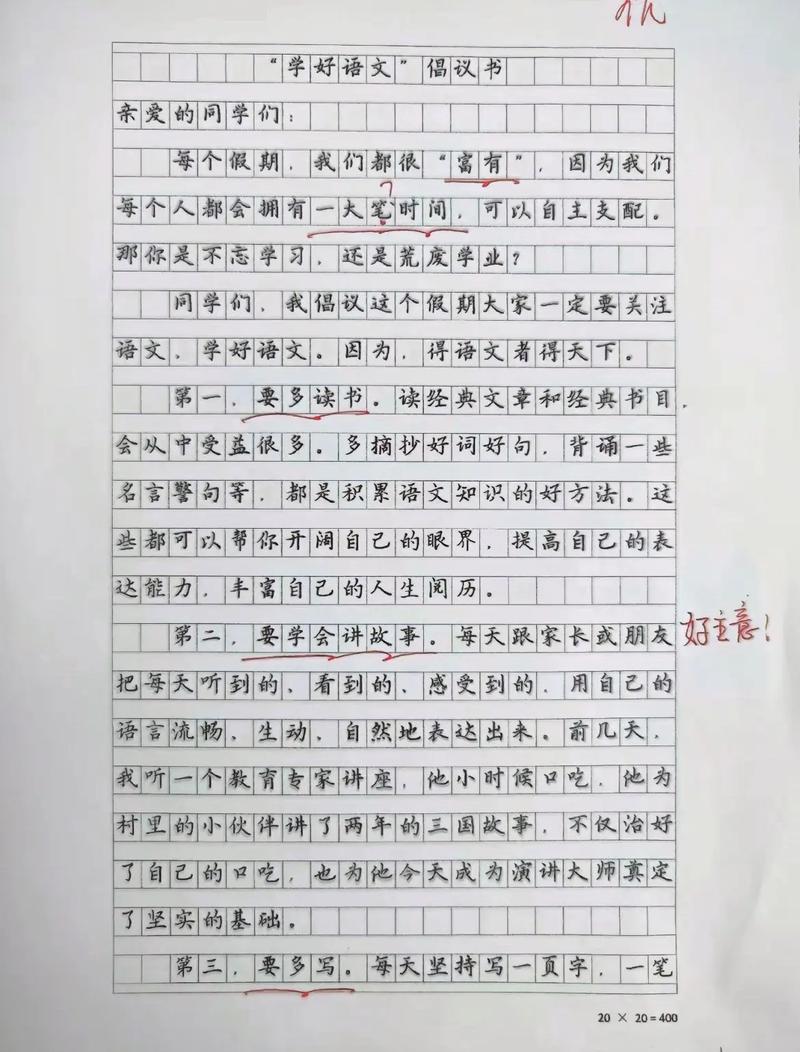 优
“学好语文”倡议书
亲爱的同学们：
每个假期，我们都很“富有”，因为我们
每个人都会拥有一大笔时间，可以自主支配。
那你是不忘学习，还是荒废学业？
同学们，我倡议这个假期大家一定要关注
语文，学好语文。因为，得语文者得天下。
第一，要多读书。读经典文章和经典书目，
会从中受益很多。多摘抄好词好句，背诵一些
名言警句等，都是积累语文知识的好方法。这
些都可以帮你开阔自己的眼界，提高自己的表
达能力，丰富自己的人生阅历。
第二，要学会讲故事。每天跟家长或朋友 好主意！
把每天听到的、看到的、感受到的，用自己的
语言流畅、生动、自然地表达出来。前几天，
我听一个教育专家讲座，他小时候口吃，他为
村里的小伙伴讲了两年的三国故事，不仅治好
了自己的口吃，也为他今天成为演讲大师奠定
了坚实的基础。
第三，要多写。每天坚持写一页字，一笔
20 × 20 = 400